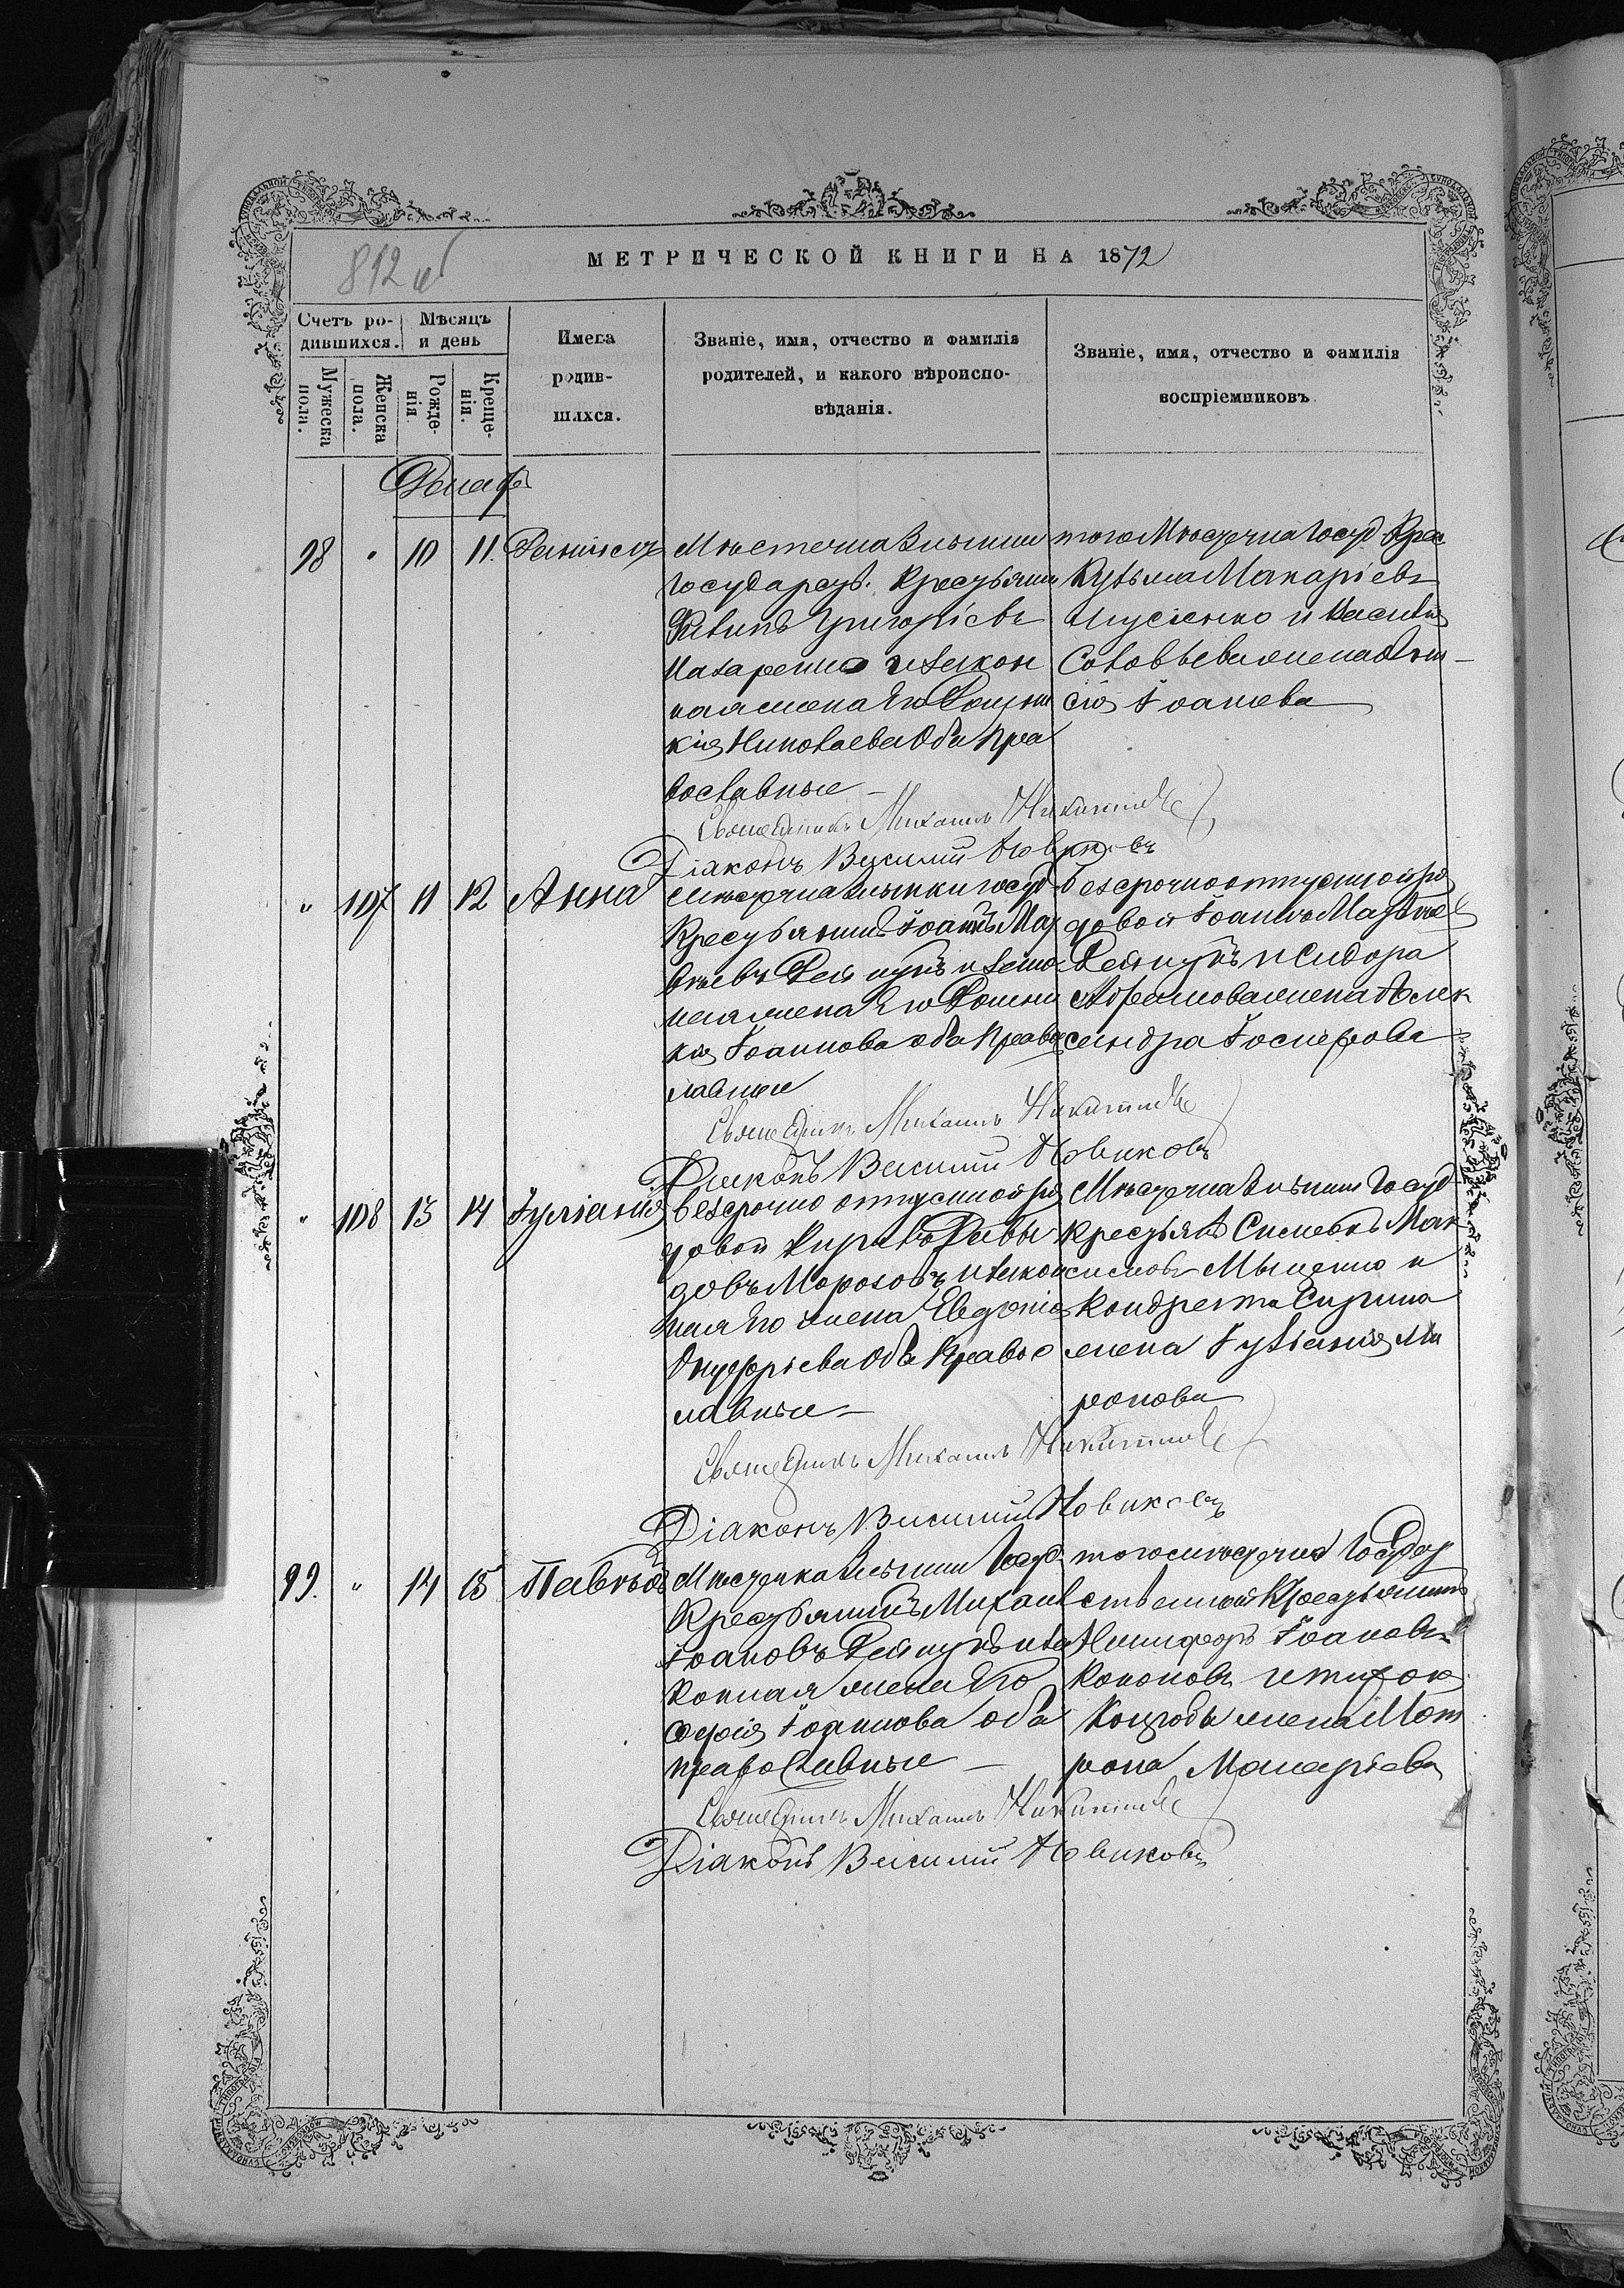 812 об
МЕТРИЧЕСКОЙ КНИГИ НА 1872
Счетъ ро-
дившихся.
Мужеска
пола.
Женска
пола.
Мѣсяцъ
и день
Рожде-
нія
Креще-
нія.
Имена
родив-
шихся.
Званіе, имя, отчество и фамилія
родителей, и какого вѣроиспо-
вѣданія.
Званіе, имя, отчество и фамилія
воспріемниковъ
Декабр
98 " 10 11 Даниилъ
Мѣстечка Ольшаны
Государст. Крестьянин
Филипъ Григоріевъ
Назаренко и закон
ная жена Его Домни
кія Николаева Оба Пра
вославные
того Мѣстечка Госуд. Крес
Кузьма Макаріевъ
и Василія
Соловьева жена
сія Іоанова
Священникъ Михаилъ Никитинъ
Діаконъ Василій Новиковъ
" 107 11 12 Анна
мѣстечка Ольшаны госуд
Крестьянинъ Іоаннъ Мат
вѣевъ Рейпукъ и закон
ная жена Его Домни
кія Іоаннова оба Правос
лавные
безсрочноотпускной ря
довой Іоаннъ Матвѣев
Рейпукъ и Сидора
Абрамова жена Алек
сандра Іосифова
Священникъ Михаилъ Никитинъ
Діаконъ Василій Новиковъ
" 108 13 14 Іуліанія
безсрочно отпускной ря
довой Кирилъ Давы
довъ Морозовъ и закон
ная Его жена Евдокія
Онуфріева Оба Правос
лавные
Мѣстечка Ольшаны Госуд
Крестьянъ Симеонъ Мак
симовъ Мыценко и
Кондрата Сирика
жена Іуліанія Ми
ронова
Священникъ Михаилъ Никитинъ
Діаконъ Василій Новиковъ
99. " 14 15 Павелъ
Мѣстечка Ольшаны Госуд
Крестьянинъ Михаил
Іоановъ Рейпукъ и за
конная жена Его
Софія Іоаннова оба
православные
того мѣстечка Государ
ственный Крестьянинъ
Никифоръ Іоановъ
Кононовъ и
жена Мат
рона Макаріева
Священникъ Михаилъ Никитинъ
Діаконъ Василій Новиковъ